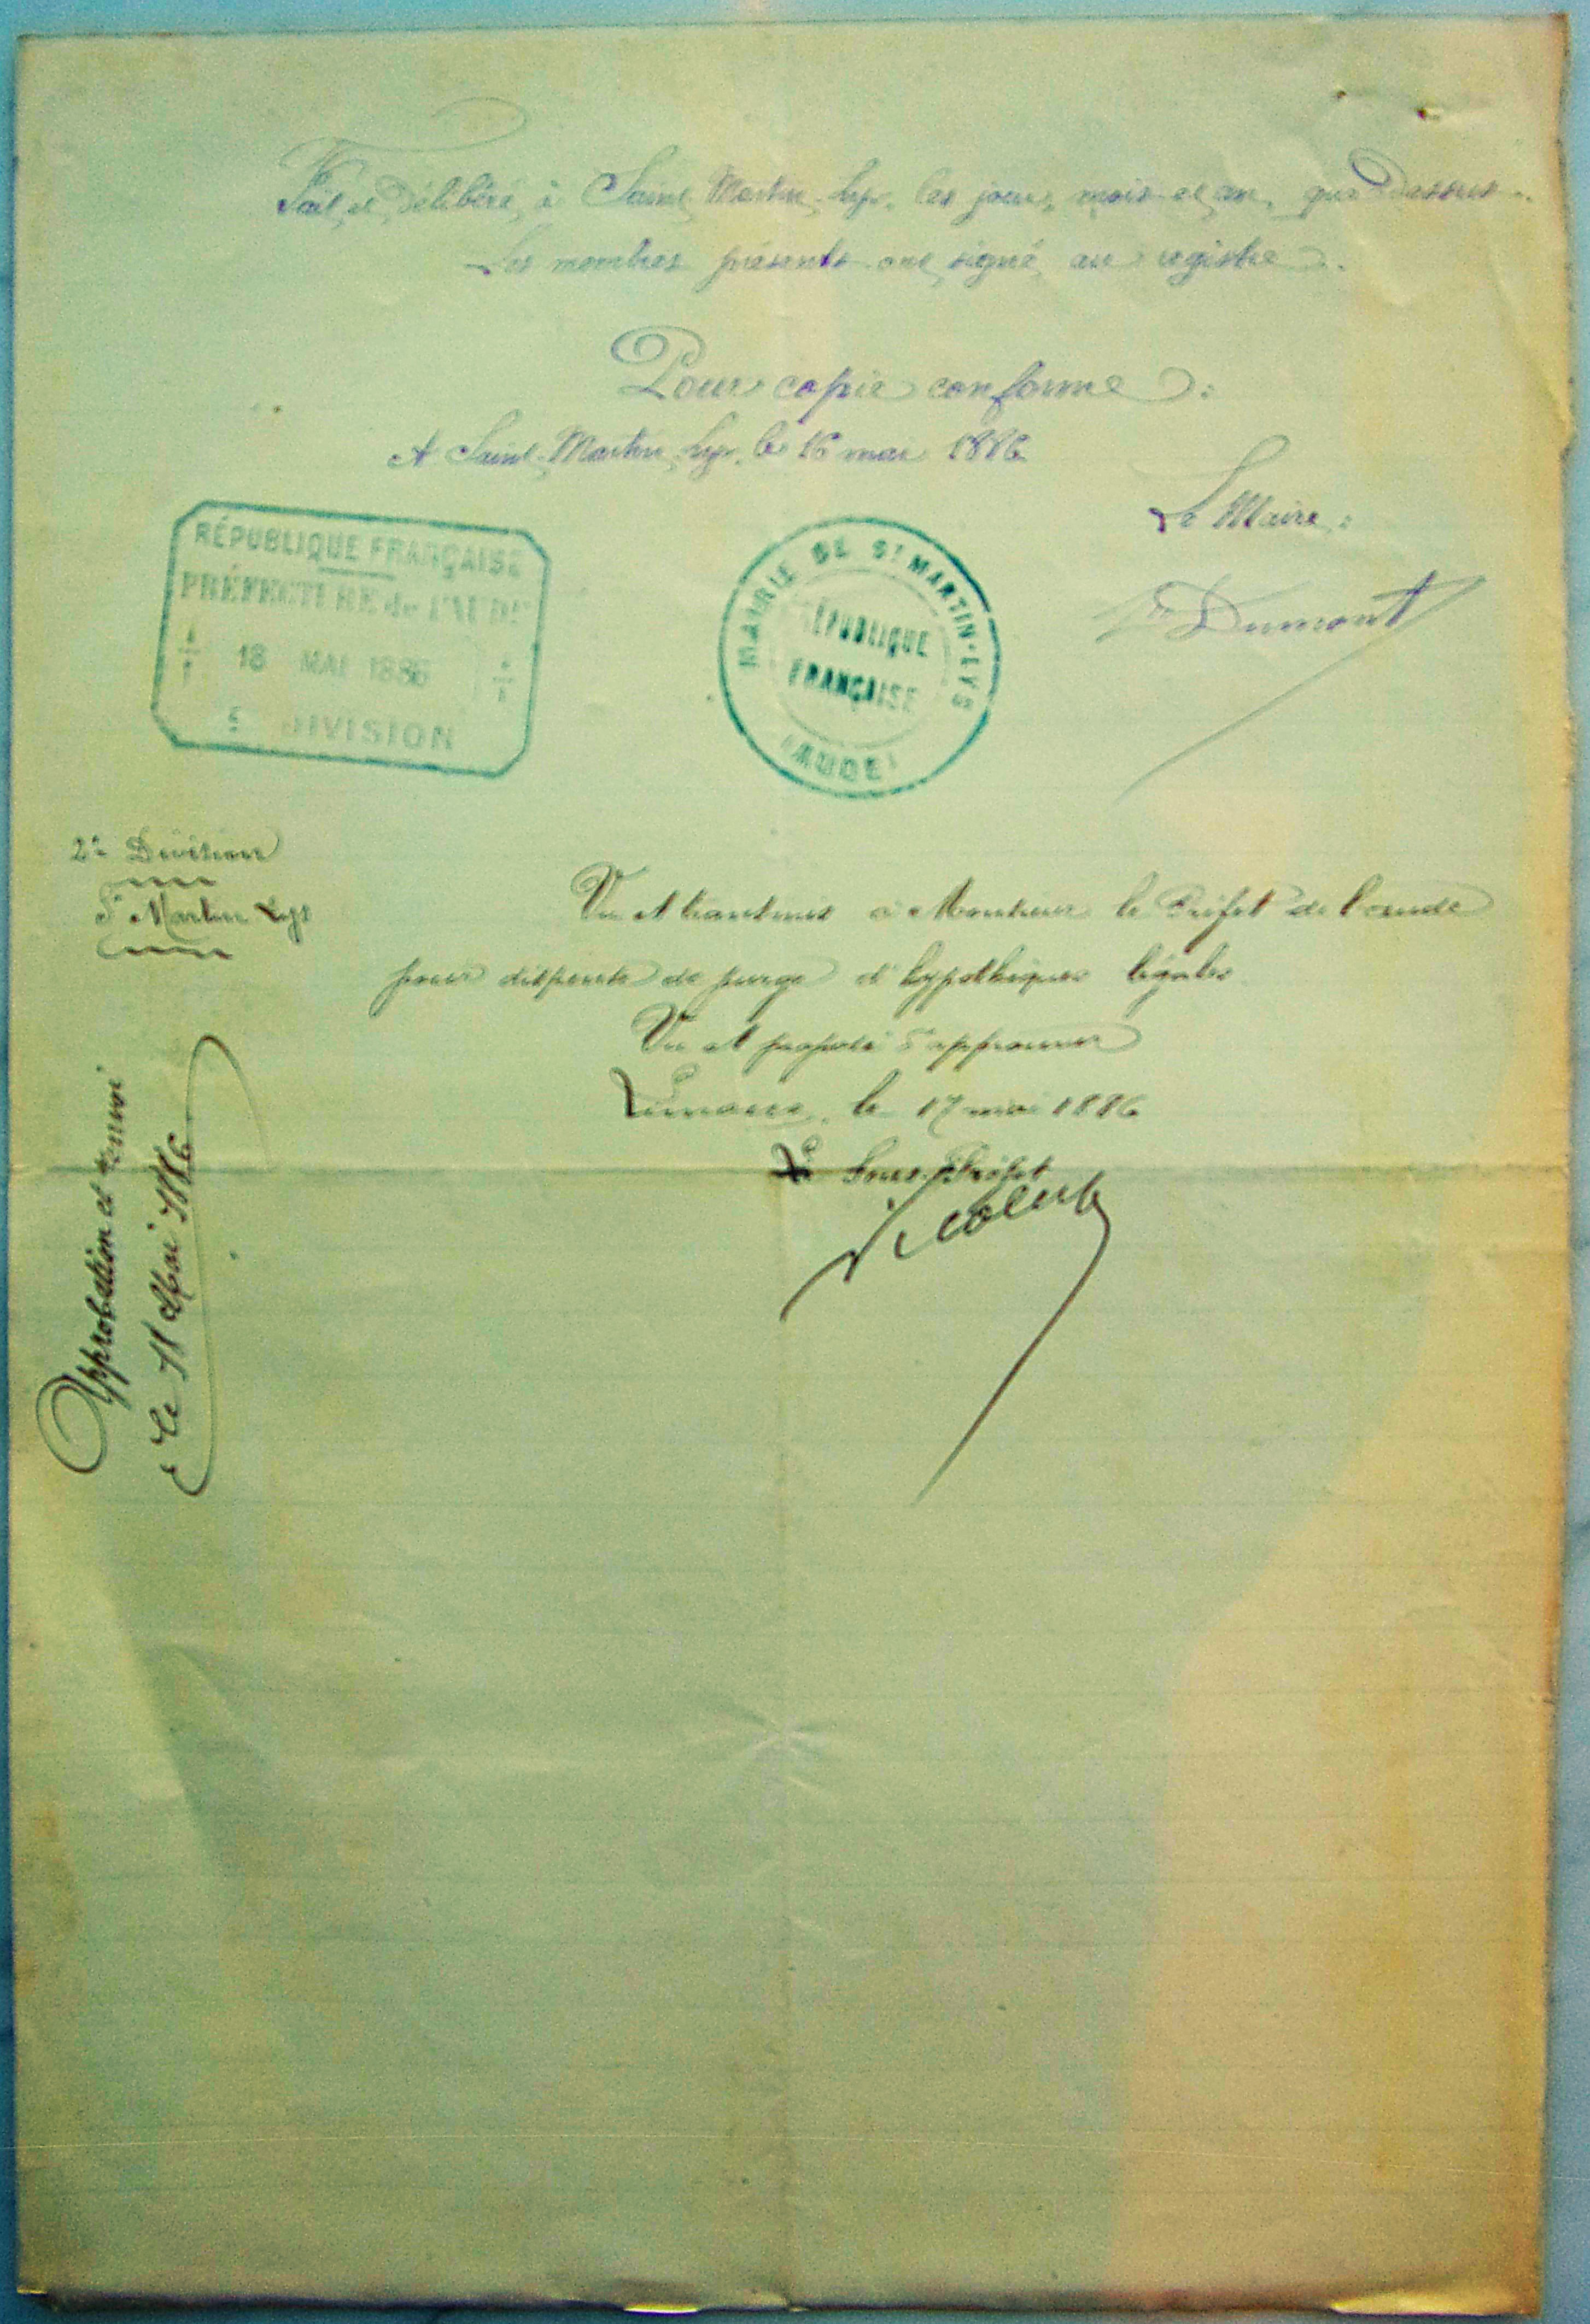 Fait et Délibéré à Saint Martin-Lys, les jour, mois et an, que Dessus.
Les membres présents ont signé au registre.
Pour copie conforme :
A Saint-Martin-Lys, le 16 mai 1886
Le Maire :
Dumont
RÉPUBLIQUE FRANÇAISE
PRÉFECTURE de l'AUDE
18 MAI 1886
DIVISION
MAIRIE DE ST MARTIN-LYS
RÉPUBLIQUE
FRANÇAISE
(AUDE)
2e Division
St Martin Lys
Vu et transmis à Monsieur le Préfet de l'aude
pour dispense de purge d'hypothèques légales
Vu et proposé d'approuver
Limoux, le 17 mai 1886
Le Sous-Préfet
Approbation et renvoi
Le Mai 1886